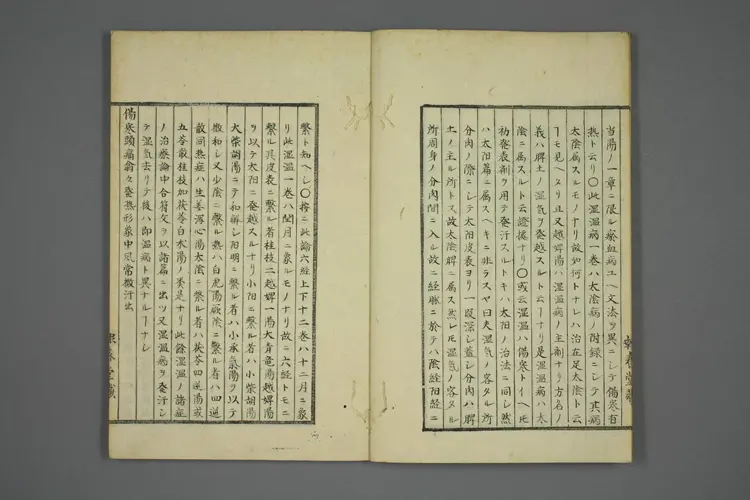 当湯ノ一章ニ限ル瘀血病ユヘ文法ヲ異ニシテ傷寒有
熱ト云リ〇此湿温病一巻ハ太陰病ノ附録ニシテ其病
太陰属スルモノナリ故如何トナレハ治在足太陰ト云
フモ見ヘタリ且又越婢湯ハ湿温病ノ主剤ナリ方名ノ
義ハ脾土ノ湿気ヲ発越スルト云フナリ是湿温病ハ太
陰ニ属スルト云證據ナリ〇或云湿温ハ傷寒トイヘモ
初発表剤ヲ用テ発汗スルトキハ太陽ノ治法ニ同シ然
ハ太陽篇ニ属スヘキニ非ラスヤ曰夫湿気ノ客タル所
分肉ノ際ニシテ太陽皮表ヨリ一段深シ蓋シ分肉ハ脾
土ノ主ル所トス故太陰脾ニ属ス然レモ湿気ノ客タル
所周身ノ分肉間ニ入ル故ニ経脈ニ於テハ陰経陽経ニ
繋ト知ヘシ〇按ニ此論六経上下十二巻ハ十二月ニ象
リ此湿温一巻ハ閏月ニ象ルモノナリ故ニ六経トモニ
繋ル其皮表ニ繋ル者桂枝二越婢一湯大青竜湯越婢湯
ヲ以テ太陽ニ発越スルナリ小陽ニ繋ル者ハ小柴胡湯
大柴胡湯ニテ和解シ陽明ニ繋ル者ハ小承気湯ヲ以テ
微和シ又少陰ニ繋ル熱ハ白虎湯厥陰ニ繋ル者ハ四逆
散同熱症ハ生姜瀉心湯太陰ニ繋ル者ハ茯苓四逆湯或
五苓散桂枝加茯苓白朮湯ノ類是ナリ此餘湿温ノ諸症
ノ治療論中合符欠ヲ以諸篇ニ出ツ又湿温病ヲ発汗シ
テ湿気去リテ後ハ即温病ト異ナルフナシ
傷寒頭痛翕々発熱形象中風常微汗出